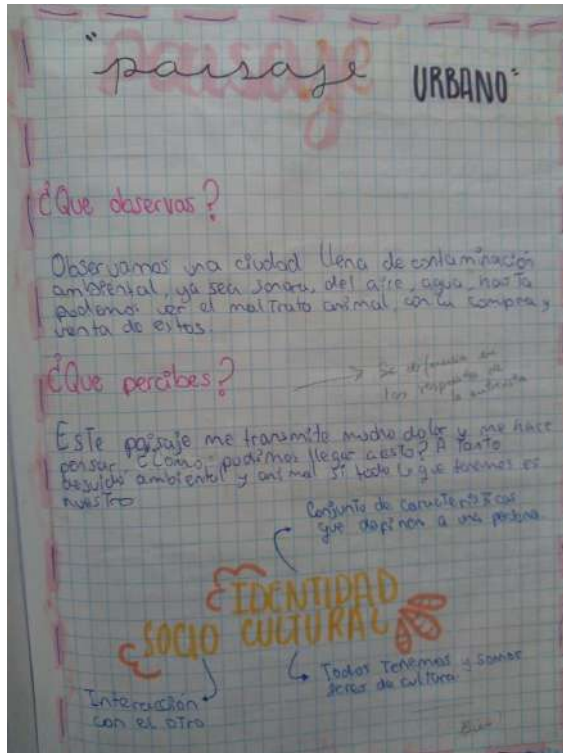 "paisaje URBANO"
paisaje
¿Que observas?
Observamos una ciudad llena de contaminación
ambiental, ya sea sonora, del aire, agua, hasta
podemos ver el maltrato animal, con la compra y
venta de estos.
¿Que percibes?
Se
las respuestas de
la
Este paisaje me transmite mucho dolor y me hace
pensar, ¿Como podemos llegar a esto? A tanto
ambiental y animal si todo lo que tenemos es
nuestro
Conjunto de características
que definen a una persona
IDENTIDAD
SOCIO CULTURAL
Todos tenemos y somos
seres de cultura
Interacción
con el otro